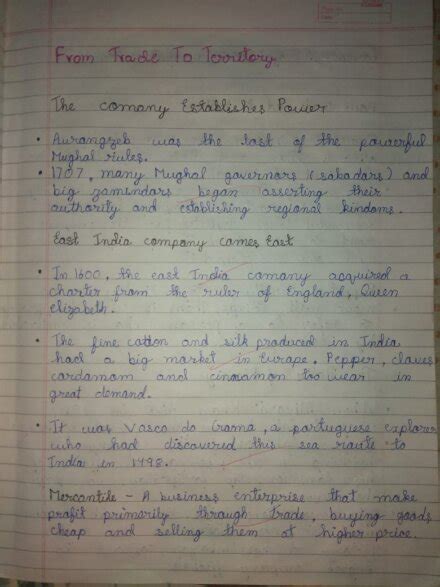 From Trade To Territory
The comany Establishes Power
• Aurangzeb was the last of the powerful
Mughal rules.
• 1707, many Mughal governors (sobadars) and
big zamendars began asserting their
authority and establishing regional kindoms.
East India company comes East
• In 1600, the east India comany acquired a
charter from the ruler of England, Queen
elizabeth.
• The fine cotton and silk produced in India
had a big market in Europe. Pepper, claves
cardamom and cinnamon too wear in
great demand.
• It was Vasco da Grama, a portuguese explorer
who had discovered this sea route to
India in 1498.
Mercantile - A business enterprise that make
profit primarily through trade, buying goods
cheap and selling them at higher price.